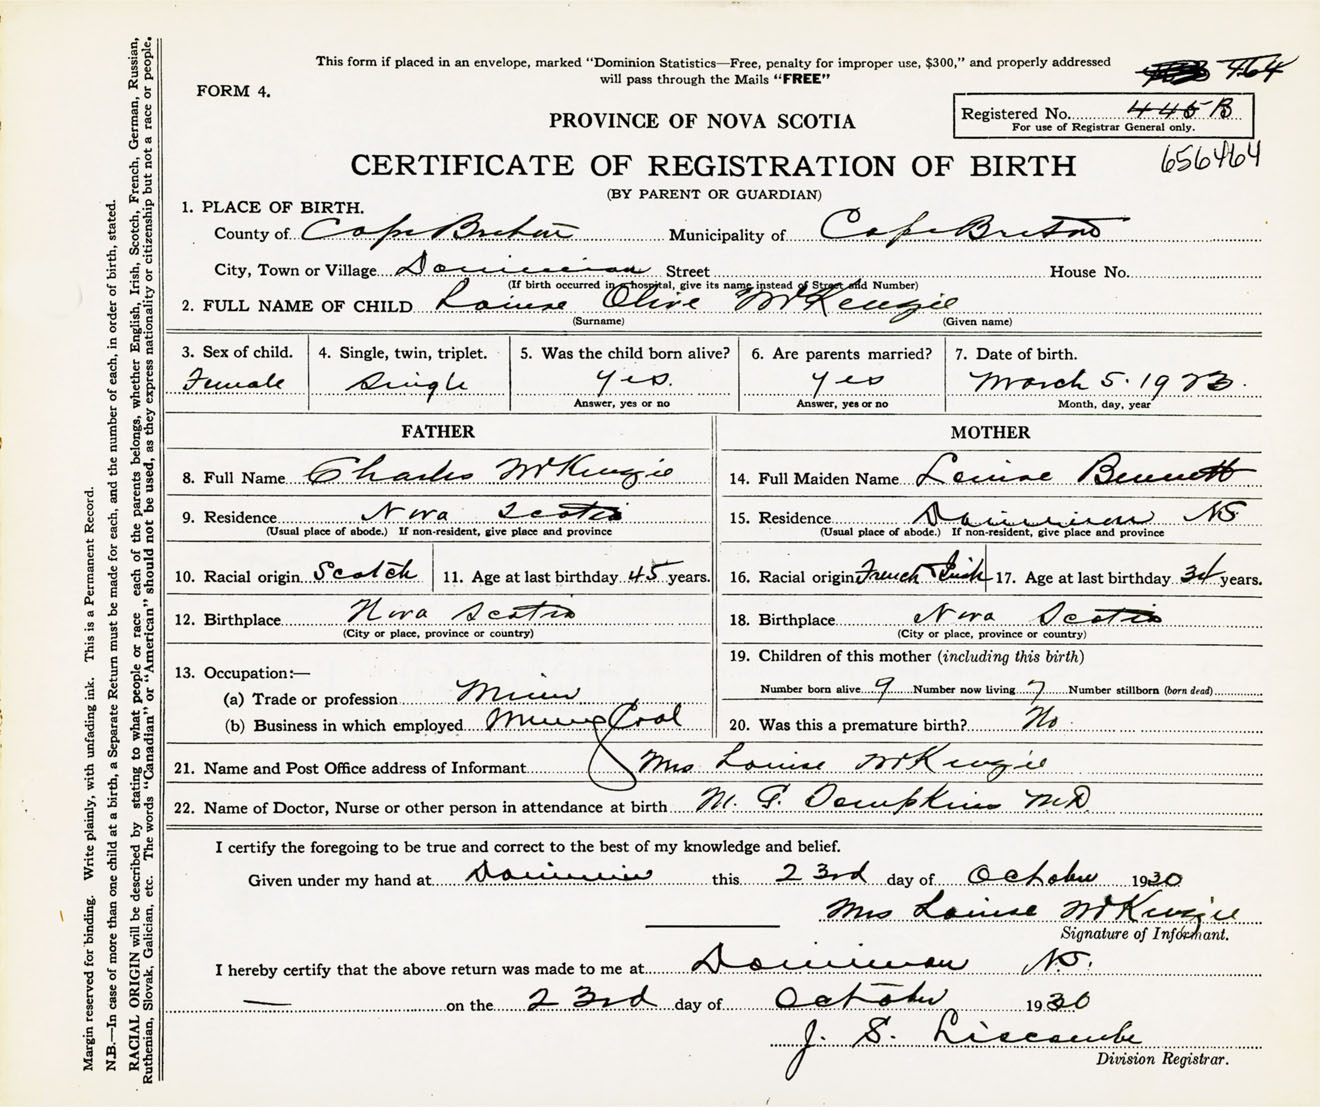 This form if placed in an envelope, marked "Dominion Statistics—Free, penalty for improper use, $300," and properly addressed
will pass through the Mails "FREE"
464
FORM 4.
PROVINCE OF NOVA SCOTIA
Registered No. 445 B
For use of Registrar General only.
CERTIFICATE OF REGISTRATION OF BIRTH
656464
(BY PARENT OR GUARDIAN)
1. PLACE OF BIRTH.
County of Cape Breton Municipality of Cape Breton
City, Town or Village Dominion Street House No.
(If birth occurred in a hospital, give its name instead of Street and Number)
2. FULL NAME OF CHILD Louise Olive McKenzie
(Surname) (Given name)
3. Sex of child. 4. Single, twin, triplet. 5. Was the child born alive? 6. Are parents married? 7. Date of birth.
Female Single Yes. Yes March 5. 1923.
Answer, yes or no Answer, yes or no Month, day, year
FATHER MOTHER
8. Full Name Charles McKenzie 14. Full Maiden Name Louise Bennett
9. Residence Nova Scotia 15. Residence Dominion NS
(Usual place of abode.) If non-resident, give place and province (Usual place of abode.) If non-resident, give place and province
10. Racial origin Scotch 11. Age at last birthday 45 years. 16. Racial origin French Irish 17. Age at last birthday 34 years.
12. Birthplace Nova Scotia 18. Birthplace Nova Scotia
(City or place, province or country) (City or place, province or country)
19. Children of this mother (including this birth)
13. Occupation:—
Number born alive 9 Number now living 7 Number stillborn (born dead)
(a) Trade or profession Miner
(b) Business in which employed Mining Coal 20. Was this a premature birth? No
21. Name and Post Office address of Informant Mrs Louise McKenzie
22. Name of Doctor, Nurse or other person in attendance at birth M. G. Tompkins MD
I certify the foregoing to be true and correct to the best of my knowledge and belief.
Given under my hand at Dominion this 23rd day of October 1930
Mrs Louise McKenzie
Signature of Informant.
I hereby certify that the above return was made to me at Dominion N.S.
on the 23rd day of October 1930
J. S. Liscombe
Division Registrar.
Margin reserved for binding. Write plainly, with unfading ink. This is a Permanent Record.
N.B.—In case of more than one child at a birth, a Separate Return must be made for each, and the number of each, in order of birth, stated.
RACIAL ORIGIN will be described by stating to what people or race each of the parents belongs, whether English, Irish, Scotch, French, German, Russian,
Ruthenian, Slovak, Galician, etc. The words "Canadian" or "American" should not be used, as they express nationality or citizenship but not a race or people.